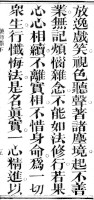 放逸戲笑視色聽聲著諸塵境起不善
業無記煩惱雜念不能如法修行若果
心心相續不離實相不惜身命為一切
眾生行懺悔法是名真實一心精進以